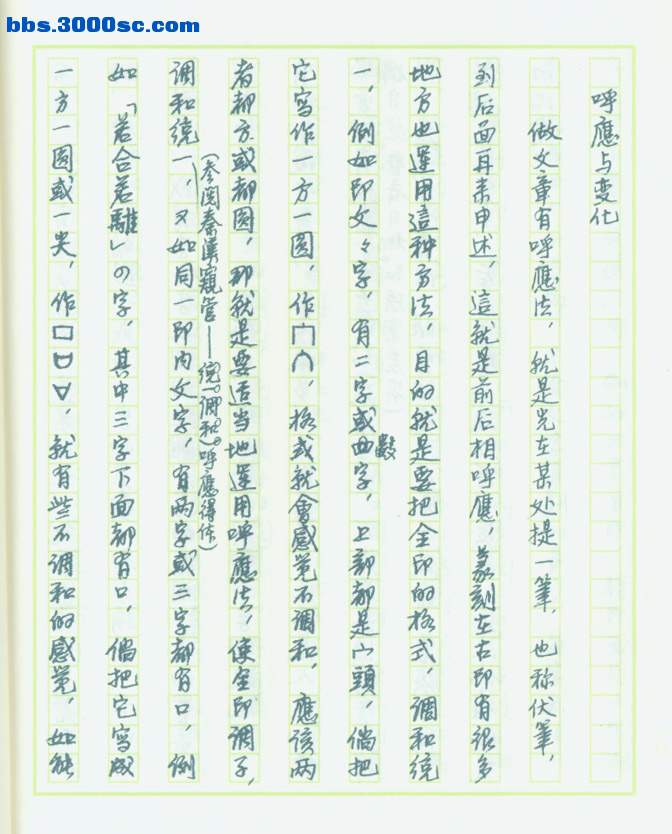 bbs.3000sc.com
呼應与变化
做文章有呼應法，就是先在某处提一筆，也称伏筆，
到后面再来申述，這就是前后相呼應，篆刻在古印有很多
地方也運用這种方法，目的就是要把全印的格式，调和统
一，例如印文々字，有二字或數字，上部都是宀頭，倘把
它寫作一方一圆，作冂∩，格式就會感觉不调和，應该两
者都方或都圆，那就是要适当地運用呼應法，使全印调子，
调和统一，(参阅秦漢窺管——统一调和)呼應得体)又如同一印内文字，有两字或三字都有口，例
如「若合若離」の字，其中三字下面都有口，倘把它寫成
一方一圆或一尖，作口▽，就有些不调和的感觉，如能